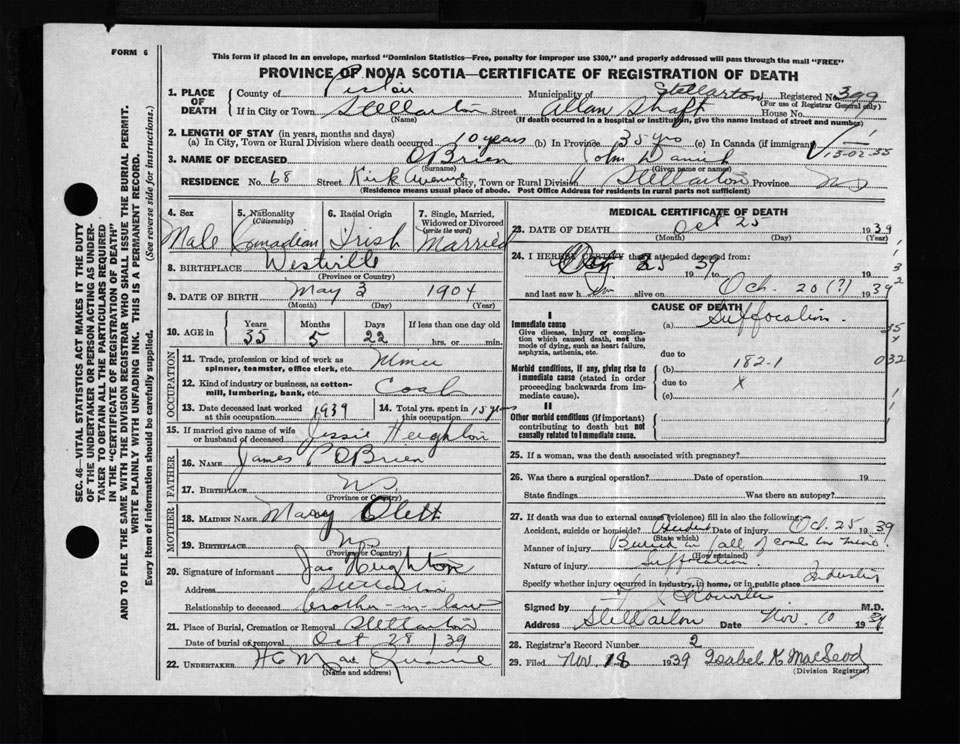 FORM 6
This form if placed in an envelope, marked "Dominion Statistics—Free, penalty for improper use $300," and properly addressed will pass through the mail "FREE"
PROVINCE OF NOVA SCOTIA—CERTIFICATE OF REGISTRATION OF DEATH
1. PLACE OF DEATH
County of Pictou Municipality of Stellarton Registered No. 399
(For use of Registrar General only)
If in City or Town Stellarton Street Allan Shaft House No.
(Name) (If death occurred in a hospital or institution, give the name instead of street and number)
2. LENGTH OF STAY (in years, months and days)
(a) In City, Town or Rural Division where death occurred 10 years (b) In Province 35 yrs (c) In Canada (if immigrant)
13-02-35
3. NAME OF DECEASED O'Brien John Daniel
(Surname) (Given name or names)
RESIDENCE No. 68 Street Kirk Avenue City, Town or Rural Division Stellarton Province N.S.
(Residence means usual place of abode. Post Office Address for residents in rural parts not sufficient)
4. Sex Male
5. Nationality (Citizenship) Canadian
6. Racial Origin Irish
7. Single, Married, Widowed or Divorced (write the word) Married
8. BIRTHPLACE Westville
(Province or Country)
9. DATE OF BIRTH May 3 1904
(Month) (Day) (Year)
10. AGE in Years Months Days If less than one day old
35 5 22 hrs. or min.
OCCUPATION
11. Trade, profession or kind of work as spinner, teamster, office clerk, etc. Miner
12. Kind of industry or business, as cotton-mill, lumbering, bank, etc. Coal
13. Date deceased last worked at this occupation 1939
14. Total yrs. spent in this occupation 15 years
15. If married give name of wife or husband of deceased Jessie Heighton
FATHER
16. NAME James P O'Brien
17. BIRTHPLACE N.S.
(Province or Country)
MOTHER
18. MAIDEN NAME Mary
19. BIRTHPLACE N.S.
(Province or Country)
20. Signature of informant Jas Heighton
Address Stellarton
Relationship to deceased brother-in-law
21. Place of Burial, Cremation or Removal Stellarton
Date of burial or removal Oct 28 '39
22. UNDERTAKER
(Name and address)
MEDICAL CERTIFICATE OF DEATH
23. DATE OF DEATH Oct 25 1939
(Month) (Day) (Year)
24. I HEREBY CERTIFY that I attended deceased from:
25 19 to 19
and last saw h im alive on Oct. 20 (?) 1939
CAUSE OF DEATH
I
Immediate cause
Give disease, injury or complication which caused death, not the mode of dying, such as heart failure, asphyxia, asthenia, etc.
(a) Suffocation
due to
Morbid conditions, if any, giving rise to immediate cause (stated in order proceeding backwards from immediate cause).
(b) 182-1
due to X
(c)
II
Other morbid conditions (if important) contributing to death but not causally related to immediate cause.
25. If a woman, was the death associated with pregnancy?
26. Was there a surgical operation? Date of operation 19
State findings Was there an autopsy?
27. If death was due to external causes (violence) fill in also the following:
Accident, suicide or homicide? Accident Date of injury Oct. 25 1939
(State which)
Manner of injury Buried in fall of coal in mine.
(How sustained)
Nature of injury Suffocation.
Specify whether injury occurred in industry, in home, or in public place Industry
Signed by M.D.
Address Stellarton Date Nov. 10 1939
28. Registrar's Record Number 2
29. Filed Nov. 18 1939 Isabel K MacLeod
(Division Registrar)
SEC. 46—VITAL STATISTICS ACT MAKES IT THE DUTY OF THE UNDERTAKER OR PERSON ACTING AS UNDERTAKER TO OBTAIN ALL THE PARTICULARS REQUIRED IN THE "CERTIFICATE OF REGISTRATION OF DEATH" AND TO FILE THE SAME WITH THE DIVISION REGISTRAR WHO SHALL ISSUE THE BURIAL PERMIT.
WRITE PLAINLY WITH UNFADING INK. THIS IS A PERMANENT RECORD.
Every item of information should be carefully supplied. (See reverse side for instructions.)